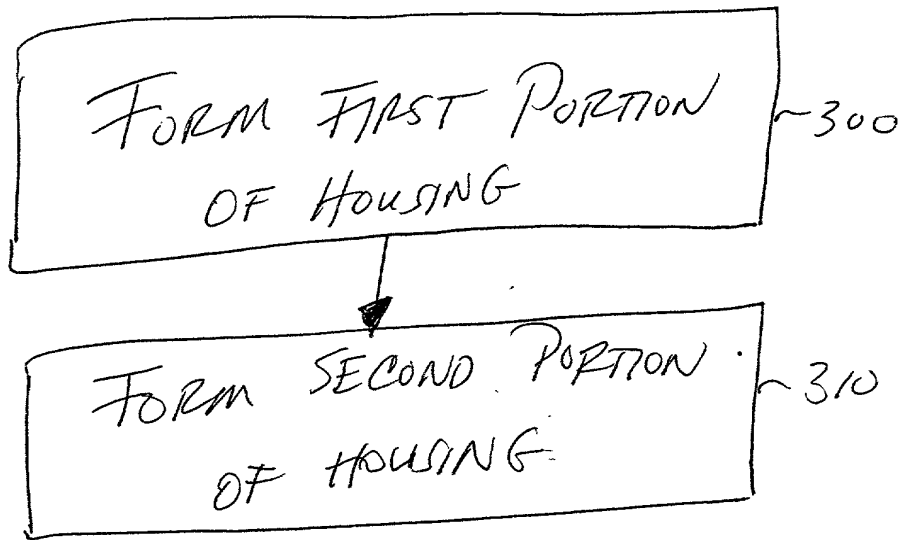 FORM FIRST PORTION
OF HOUSING
~300
FORM SECOND PORTION
OF HOUSING
~310